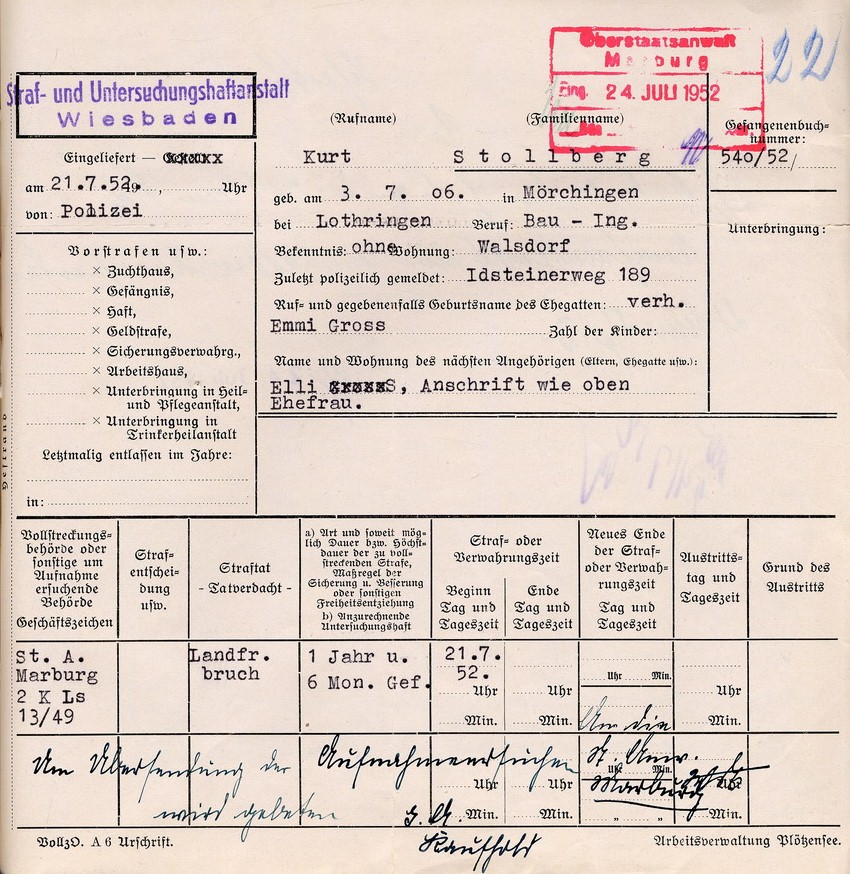 Oberstaatsanwalt
Marburg
Eing. 24. JULI 1952
22
Straf- und Untersuchungshaftanstalt
Wiesbaden
Eingeliefert —
am 21.7.52, Uhr
von: Polizei
Vorstrafen usw.:
× Zuchthaus,
× Gefängnis,
× Haft,
× Geldstrafe,
× Sicherungsverwahrg.,
× Arbeitshaus,
× Unterbringung in Heil-
und Pflegeanstalt,
× Unterbringung in
Trinkerheilanstalt
Letztmalig entlassen im Jahre:
in:
(Rufname) (Familienname)
Kurt Stollberg
geb. am 3. 7. 06. in Mörchingen
bei Lothringen Beruf: Bau - Ing.
Bekenntnis: ohne Wohnung: Walsdorf
Zuletzt polizeilich gemeldet: Idsteinerweg 189
Ruf- und gegebenenfalls Geburtsname des Ehegatten: verh.
Emmi Gross Zahl der Kinder:
Name und Wohnung des nächsten Angehörigen (Eltern, Ehegatte usw.):
Elli S, Anschrift wie oben
Ehefrau.
Gefangenenbuch-
nummer:
540/52
Unterbringung:
Vollstreckungs-
behörde oder
sonstige um
Aufnahme
ersuchende
Behörde
Geschäftszeichen
Straf-
entschei-
dung
usw.
Straftat
- Tatverdacht -
a) Art und soweit mög-
lich Dauer bzw. Höchst-
dauer der zu voll-
streckenden Strafe,
Maßregel der
Sicherung u. Besserung
oder sonstigen
Freiheitsentziehung
b) Anzurechnende
Untersuchungshaft
Straf- oder
Verwahrungszeit
Beginn
Tag und
Tageszeit
Ende
Tag und
Tageszeit
Neues Ende
der Straf-
oder Verwah-
rungszeit
Tag und
Tageszeit
Austritts-
tag und
Tageszeit
Grund des
Austritts
St. A.
Marburg
2 K Ls
13/49
Landfr.
bruch
1 Jahr u.
6 Mon. Gef.
21.7.
52.
Uhr
Min.
Uhr
Min.
Uhr Min.
Uhr
Min.
Um Übersendung des Aufnahmeersuchen
wird gebeten
Uhr
Min.
Uhr
Min.
An die
St. Anw.
Marburg
Uhr Min.
" "
Uhr
Min.
J. A.
Kaufhold
VollzO. A 6 Urschrift.
Arbeitsverwaltung Plötzensee.